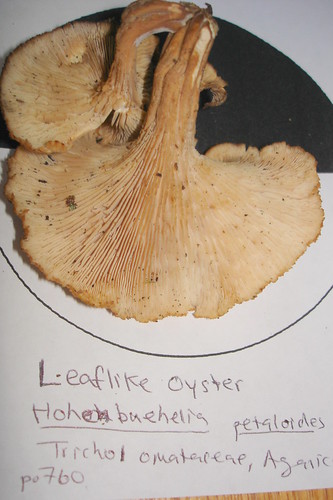 Leaflike Oyster
Hohenbuehelia petaloides
Tricholomatareae, Agaric
po760